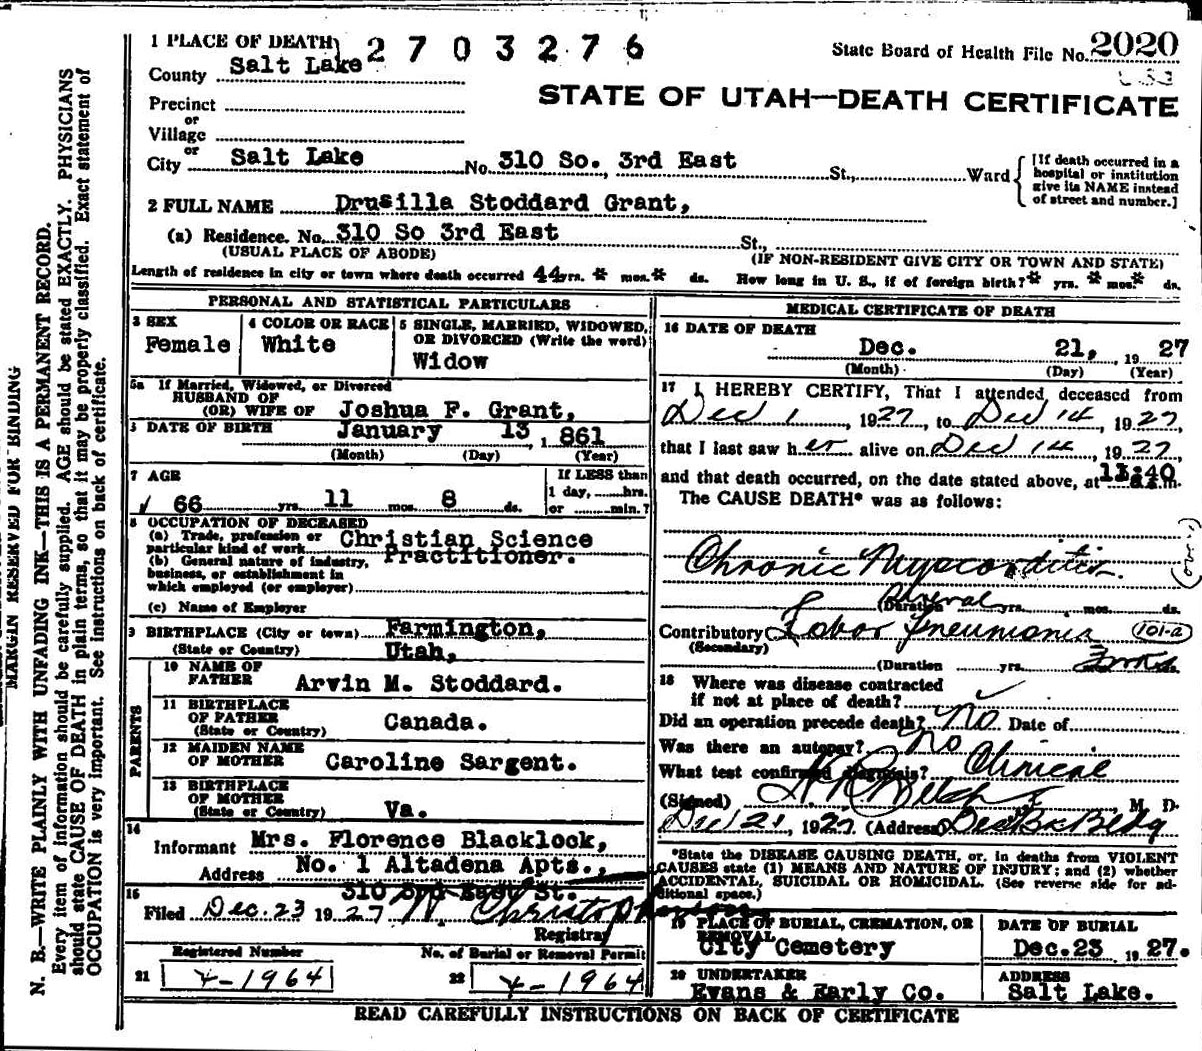 1 PLACE OF DEATH 2 7 0 3 2 7 6
State Board of Health File No. 2020
County Salt Lake
STATE OF UTAH—DEATH CERTIFICATE
Precinct
or
Village
or
City Salt Lake No. 310 So. 3rd East St., Ward
[If death occurred in a hospital or institution give its NAME instead of street and number.]
2 FULL NAME Drusilla Stoddard Grant,
(a) Residence. No. 310 So 3rd East St.,
(USUAL PLACE OF ABODE) (IF NON-RESIDENT GIVE CITY OR TOWN AND STATE)
Length of residence in city or town where death occurred 44 yrs. * mos. * ds. How long in U. S., if of foreign birth? * yrs. * mos. * ds.
PERSONAL AND STATISTICAL PARTICULARS
3 SEX
Female
4 COLOR OR RACE
White
5 SINGLE, MARRIED, WIDOWED, OR DIVORCED (Write the word)
Widow
5a If Married, Widowed, or Divorced
HUSBAND OF
(OR) WIFE OF Joshua F. Grant,
DATE OF BIRTH January 13, 1861
(Month) (Day) (Year)
7 AGE
66 yrs. 11 mos. 8 ds.
If LESS than
1 day, hrs.
or min.?
8 OCCUPATION OF DECEASED
(a) Trade, profession or particular kind of work Christian Science Practitioner.
(b) General nature of industry, business, or establishment in which employed (or employer)
(c) Name of Employer
9 BIRTHPLACE (City or town) Farmington,
(State or Country) Utah,
PARENTS
10 NAME OF FATHER Arvin M. Stoddard.
11 BIRTHPLACE OF FATHER (State or Country) Canada.
12 MAIDEN NAME OF MOTHER Caroline Sargent.
13 BIRTHPLACE OF MOTHER (State or Country) Va.
14
Informant Mrs. Florence Blacklock,
Address No. 1 Altadena Apts.,
310 3rd East St.
15
Filed Dec. 23 1927
Registrar
Registered Number
21 1964
No. of Burial or Removal Permit
22 1964
MEDICAL CERTIFICATE OF DEATH
16 DATE OF DEATH
Dec. 21, 1927
(Month) (Day) (Year)
17 I HEREBY CERTIFY, That I attended deceased from
Dec 1, 1927, to Dec 14, 1927,
that I last saw her alive on Dec 14, 1927,
and that death occurred, on the date stated above, at 11:40 m.
The CAUSE DEATH* was as follows:
Chronic Myocorditis
(Duration Several yrs. mos. ds.
Contributory Lobar Pneumonia 101-a
(Secondary)
(Duration yrs.
18 Where was disease contracted
if not at place of death?
Did an operation precede death? No Date of
Was there an autopsy? No
What test confirmed diagnosis? Clinical
(Signed) M. D.
Dec 21, 1927 (Address
*State the DISEASE CAUSING DEATH, or, in deaths from VIOLENT
CAUSES state (1) MEANS AND NATURE OF INJURY; and (2) whether
ACCIDENTAL, SUICIDAL OR HOMICIDAL. (See reverse side for additional space.)
19 PLACE OF BURIAL, CREMATION, OR REMOVAL
City Cemetery
DATE OF BURIAL
Dec. 23 1927.
20 UNDERTAKER
Evans & Early Co.
ADDRESS
Salt Lake.
READ CAREFULLY INSTRUCTIONS ON BACK OF CERTIFICATE
MARGIN RESERVED FOR BINDING
N. B.—WRITE PLAINLY WITH UNFADING INK—THIS IS A PERMANENT RECORD.
Every item of information should be carefully supplied. AGE should be stated EXACTLY. PHYSICIANS
should state CAUSE OF DEATH in plain terms, so that it may be properly classified. Exact statement of
OCCUPATION is very important. See Instructions on back of certificate.